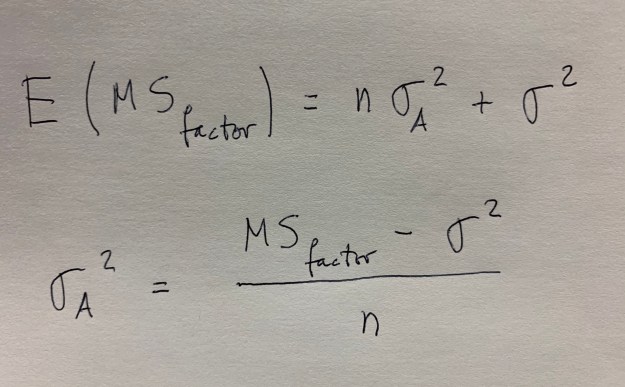 E (MS_factor) = n σ_A² + σ²
σ_A² = (MS_factor - σ²) / n